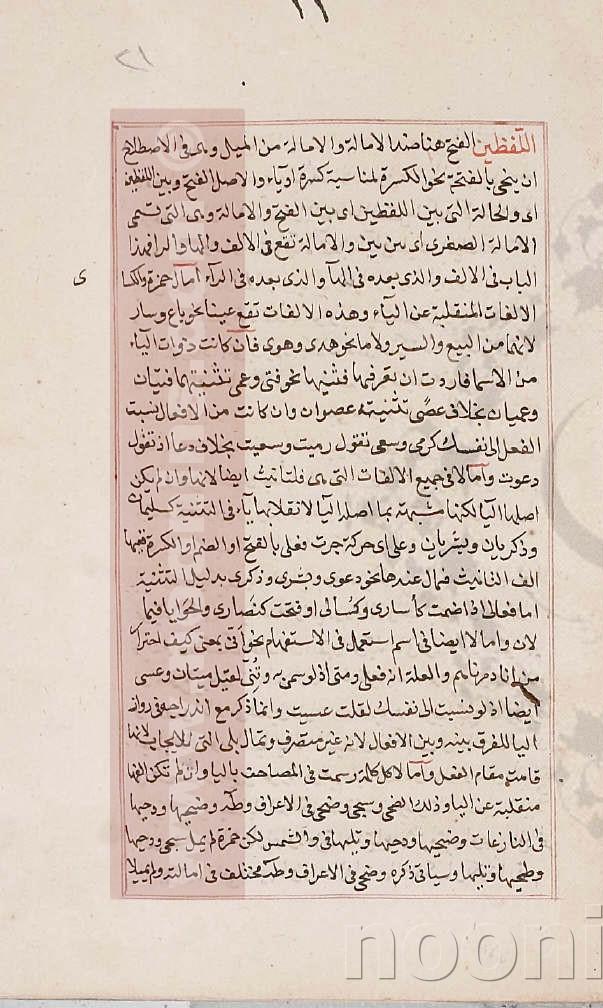 ٢١
اللفظين الفتح هنا ضد الامالة والامالة من الميل وهى فى الاصطلاح
ان ينحى بالفتحة نحو الكسرة لمناسبة كسرة او ياء والاصل الفتح وبين اللفظين
اى والحالة التى بين اللفظين اى بين الفتح والامالة وهى التى تسمى
الامالة الصغرى اى بين بين والامالة تقع فى الالف والهاء والراء فهذا
الباب فى الالف والذى بعده فى الهآ والذى بعده فى الرآء امال حمزة والكسا
ى
الالفات المنقلبة عن اليآء وهذه الالفات تقع عينا نحو باع وسار
لانهما من البيع والسير ولاما نحو هدى وهوى فان كانت ذوات اليآء
من الاسما فاردت ان تعرفها فثنيها نحو فتى وعمى تثنيتهما فتيان
وعميان بخلاف عصى تثنيته عصوان وان كانت من الافعال نسبت
الفعل الى نفسك كرمى وسعى تقول رميت وسعيت بخلاف دعا اذ تقول
دعوت وامالا فى جميع الالفات التى هى للتانيث ايضا لانها وان لم يكن
اصلها اليا لكنها مشبهة بما اصله اليا لانقلابها يآء فى التثنية
وذكريان وبشريان وعلى اى حركة جرت فعلى بالفتح او الضم او الكسرة ففيها
الف التانيث فتمال عندهما نحو دعوى وبشرى وذكرى بدليل التثنية
اما فعالى اذا ضمت كأسارى وكسالى او فتحت كنصارى والحوايا فيما
لان وامالا ايضا فى اسم استعمل فى الاستفهام نحو أنّى بمعنى كيف احترا
من انا والعلة انه فعلى ومتى اذ لو سمى به وثنى لقيل متيان وعسى
ايضا اذ لو نسبت الى نفسك لقلت عسيت وانما ذكر مع
اليا للفرق بينه وبين الافعال لانه غير متصرف وتمال بلى التى للايجاب لانها
قامت مقام الفعل وامالا كل كلمة رسمت فى المصاحف باليا وان لم تكن الفها
منقلبة عن اليا وذلك الضحى وسجى وضحى فى الاعراف وطه وضحيها ودحيها
فى النازعات وضحيها ودحيها وتليها فى والشمس لكن حمزة لم يمل سجى ودحيها
وطحيها وتليها وسياتى ذكره وضحى فى الاعراف وطه مختلف فى امالته ولم يميلا
nooni